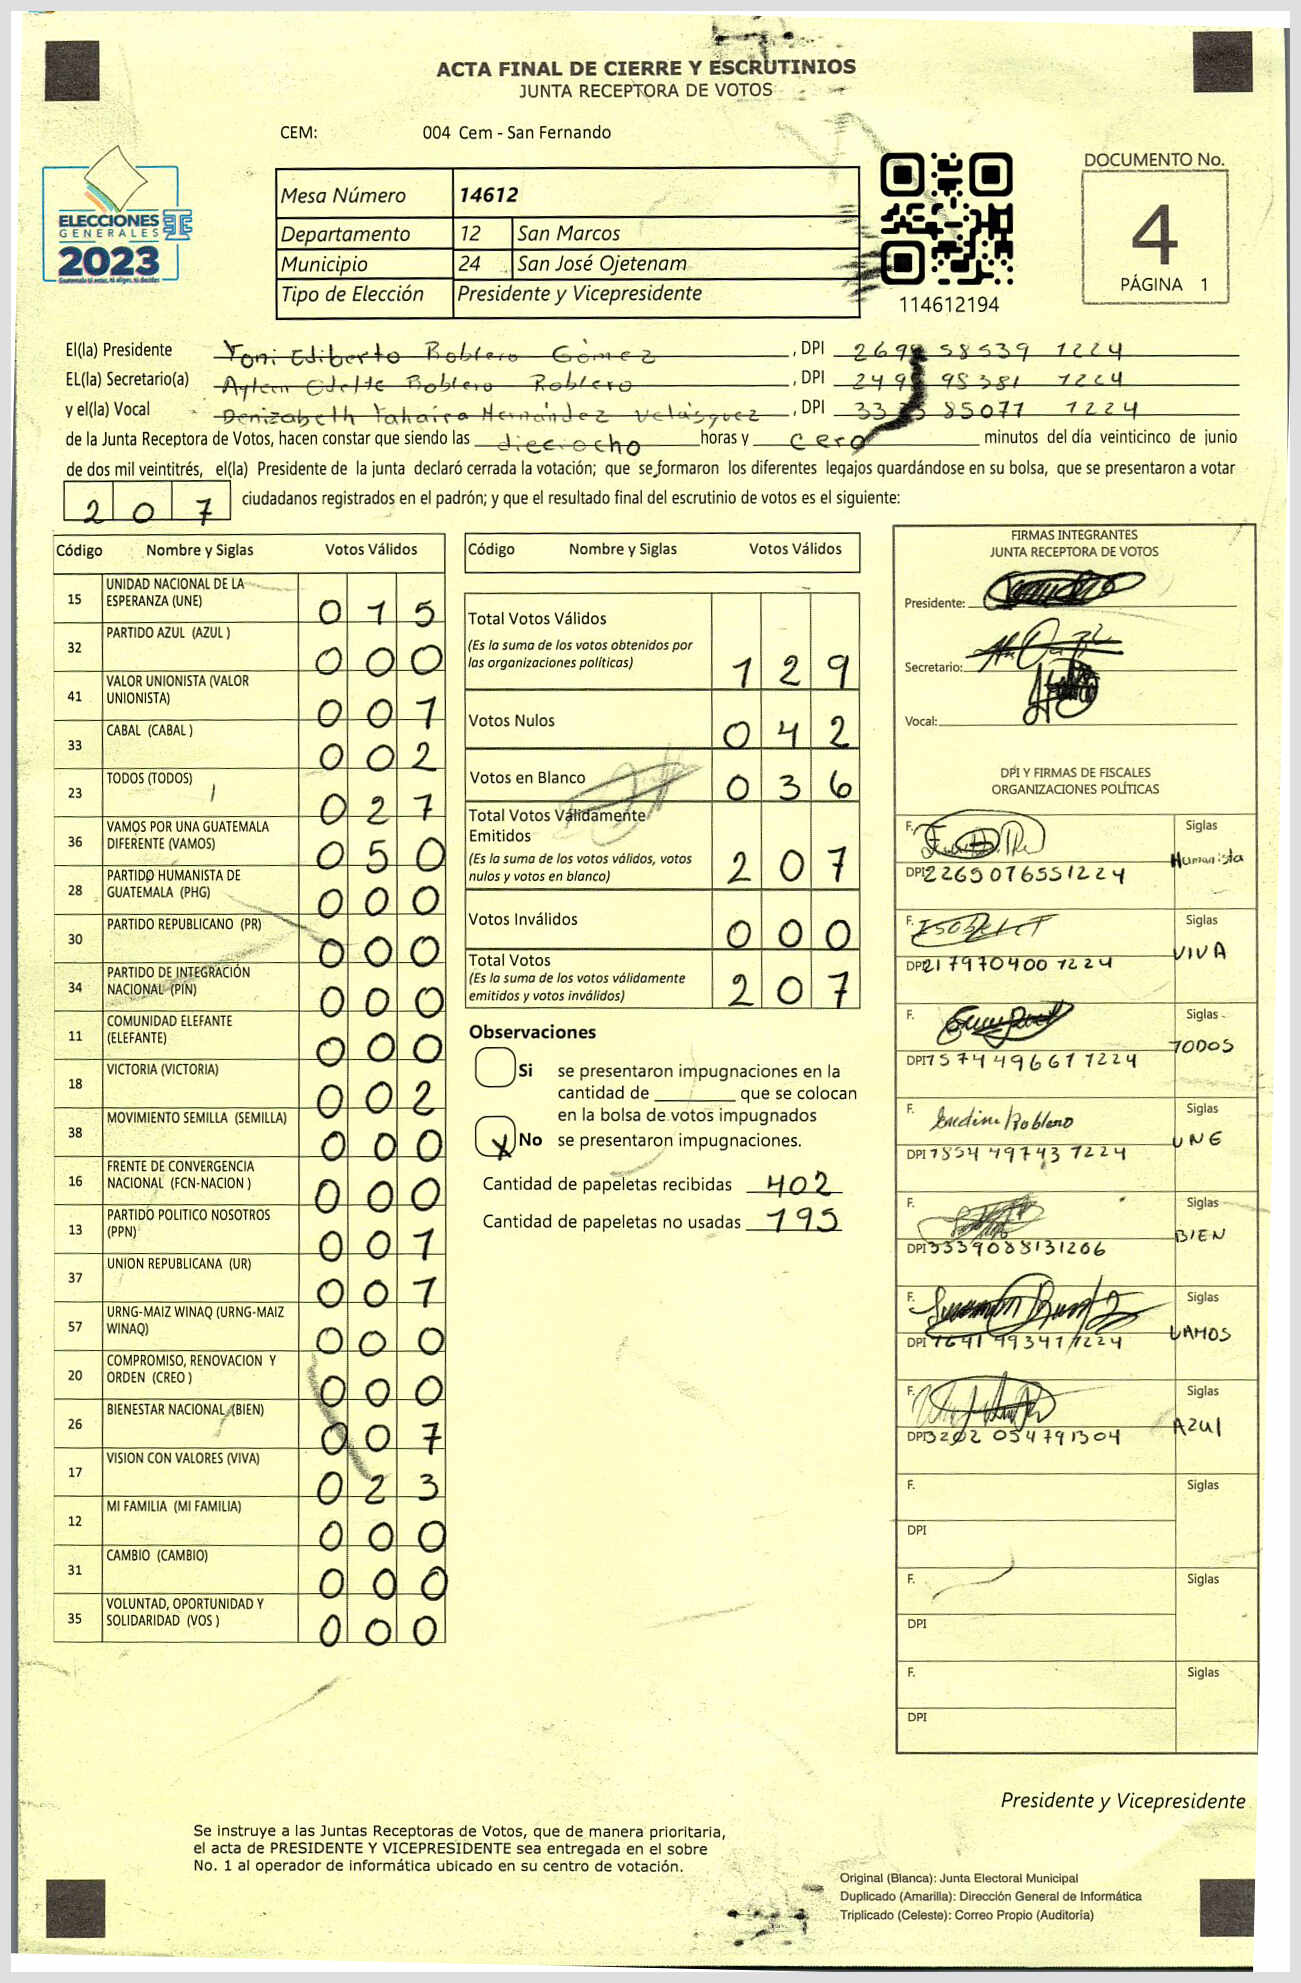 ACTA FINAL DE CIERRE Y ESCRUTINIOS
JUNTA RECEPTORA DE VOTOS
CEM: 004 Cem - San Fernando
ELECCIONES
GENERALES
2023
Mesa Número 14612
Departamento 12 San Marcos
Municipio 24 San José Ojetenam
Tipo de Elección Presidente y Vicepresidente
114612194
DOCUMENTO No.
4
PÁGINA 1
El(la) Presidente Yoni Ediberto Roblero Gómez, DPI 58539 1224
EL(la) Secretario(a) Aylin Odette Roblero Roblero, DPI 98381 1224
y el(la) Vocal Denizabeth Yahaira Hernández Velásquez, DPI 85077 1224
de la Junta Receptora de Votos, hacen constar que siendo las dieciocho horas y cero minutos del día veinticinco de junio
de dos mil veintitrés, el(la) Presidente de la junta declaró cerrada la votación; que se formaron los diferentes legajos guardándose en su bolsa, que se presentaron a votar
207 ciudadanos registrados en el padrón; y que el resultado final del escrutinio de votos es el siguiente:
Código Nombre y Siglas Votos Válidos
15 UNIDAD NACIONAL DE LA ESPERANZA (UNE) 015
32 PARTIDO AZUL (AZUL ) 000
41 VALOR UNIONISTA (VALOR UNIONISTA) 001
33 CABAL (CABAL ) 002
23 TODOS (TODOS) 027
36 VAMOS POR UNA GUATEMALA DIFERENTE (VAMOS) 050
28 PARTIDO HUMANISTA DE GUATEMALA (PHG) 000
30 PARTIDO REPUBLICANO (PR) 000
34 PARTIDO DE INTEGRACIÓN NACIONAL (PIN) 000
11 COMUNIDAD ELEFANTE (ELEFANTE) 000
18 VICTORIA (VICTORIA) 002
38 MOVIMIENTO SEMILLA (SEMILLA) 000
16 FRENTE DE CONVERGENCIA NACIONAL (FCN-NACION ) 000
13 PARTIDO POLITICO NOSOTROS (PPN) 001
37 UNION REPUBLICANA (UR) 001
57 URNG-MAIZ WINAQ (URNG-MAIZ WINAQ) 000
20 COMPROMISO, RENOVACION Y ORDEN (CREO ) 000
26 BIENESTAR NACIONAL (BIEN) 007
17 VISION CON VALORES (VIVA) 023
12 MI FAMILIA (MI FAMILIA) 000
31 CAMBIO (CAMBIO) 000
35 VOLUNTAD, OPORTUNIDAD Y SOLIDARIDAD (VOS ) 000
Código Nombre y Siglas Votos Válidos
Total Votos Válidos 129
(Es la suma de los votos obtenidos por
las organizaciones políticas)
Votos Nulos 042
Votos en Blanco 036
Total Votos Válidamente
Emitidos 207
(Es la suma de los votos válidos, votos
nulos y votos en blanco)
Votos Inválidos 000
Total Votos 207
(Es la suma de los votos válidamente
emitidos y votos inválidos)
Observaciones
Si se presentaron impugnaciones en la
cantidad de ________ que se colocan
en la bolsa de votos impugnados
X No se presentaron impugnaciones.
Cantidad de papeletas recibidas 402
Cantidad de papeletas no usadas 195
FIRMAS INTEGRANTES
JUNTA RECEPTORA DE VOTOS
Presidente:
Secretario:
Vocal:
DPI Y FIRMAS DE FISCALES
ORGANIZACIONES POLÍTICAS
F. Siglas
DPI 2265076551224 Humanista
F. Siglas
DPI 217970400 1224 VIVA
F. Siglas
DPI 1574496611224 TODOS
F. Siglas
DPI 1854 49743 1224 UNE
F. Siglas
DPI 3339088131206 BIEN
F. Siglas
DPI 1641 99341 1224 VAMOS
F. Siglas
DPI 3202 054791304 AZUL
F. Siglas
DPI
F. Siglas
DPI
F. Siglas
DPI
Presidente y Vicepresidente
Se instruye a las Juntas Receptoras de Votos, que de manera prioritaria,
el acta de PRESIDENTE Y VICEPRESIDENTE sea entregada en el sobre
No. 1 al operador de informática ubicado en su centro de votación.
Original (Blanca): Junta Electoral Municipal
Duplicado (Amarilla): Dirección General de Informática
Triplicado (Celeste): Correo Propio (Auditoría)